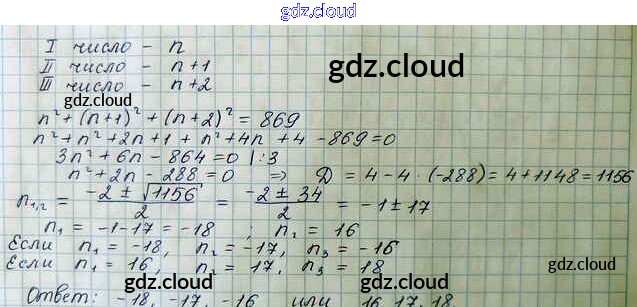 gdz.cloud
I число - n
II число - n+1
III число - n+2
gdz.cloud
gdz.cloud
n² + (n+1)² + (n+2)² = 869
n² + n² + 2n + 1 + n² + 4n + 4 - 869 = 0
3n² + 6n - 864 = 0 | :3
n² + 2n - 288 = 0 ⇒ D = 4 - 4 · (-288) = 4 + 1148 = 1156
n₁,₂ = (-2 ± √1156)/2 = (-2 ± 34)/2 = -1 ± 17
n₁ = -1 - 17 = -18 ; n₂ = 16
Если n₁ = -18, n₂ = -17, n₃ = -16
Если n₁ = 16, n₂ = 17, n₃ = 18
gdz.cloud
gdz.cloud
Ответ: -18, -17, -16 или 16, 17, 18